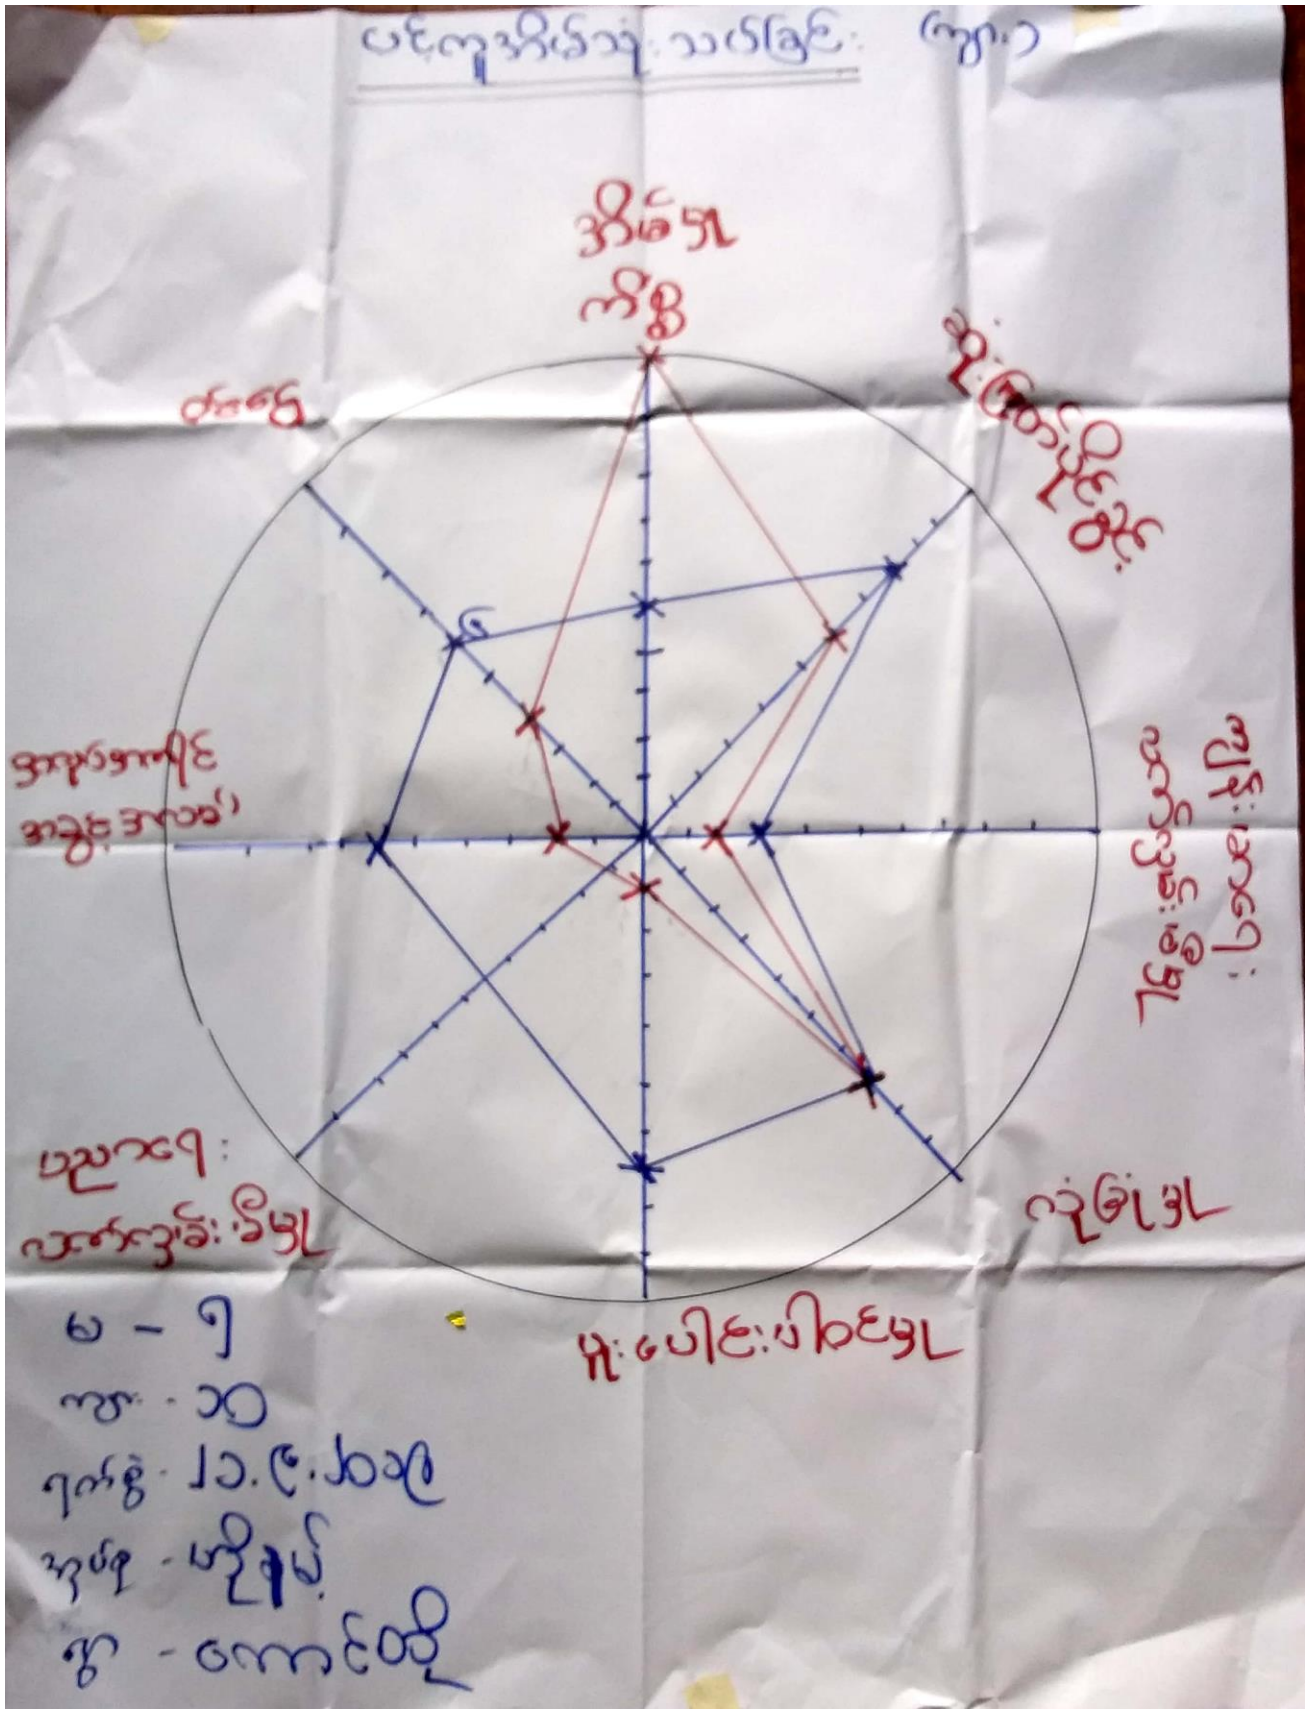 ပင့်ကူအိမ်သုံးသပ်ခြင်း (ကျား)
အိမ်မှု
ကိစ္စ
ဆုံးဖြတ်ပိုင်ခွင့်
ကျန်းမာရေး
လက်လှမ်းမီမှု
လုံခြုံမှု
ပူးပေါင်းပါဝင်မှု
ပညာရေး
လက်လှမ်းမီမှု
အလုပ်အကိုင်
အခွင့်အလမ်း
ဝင်ငွေ
၆
မ - ၅
ကျား - ၁၀
ရက်စွဲ - ၂၁.၉.၂၀၁၉
အုပ်စု -
ရွာ - ကောင်းတို